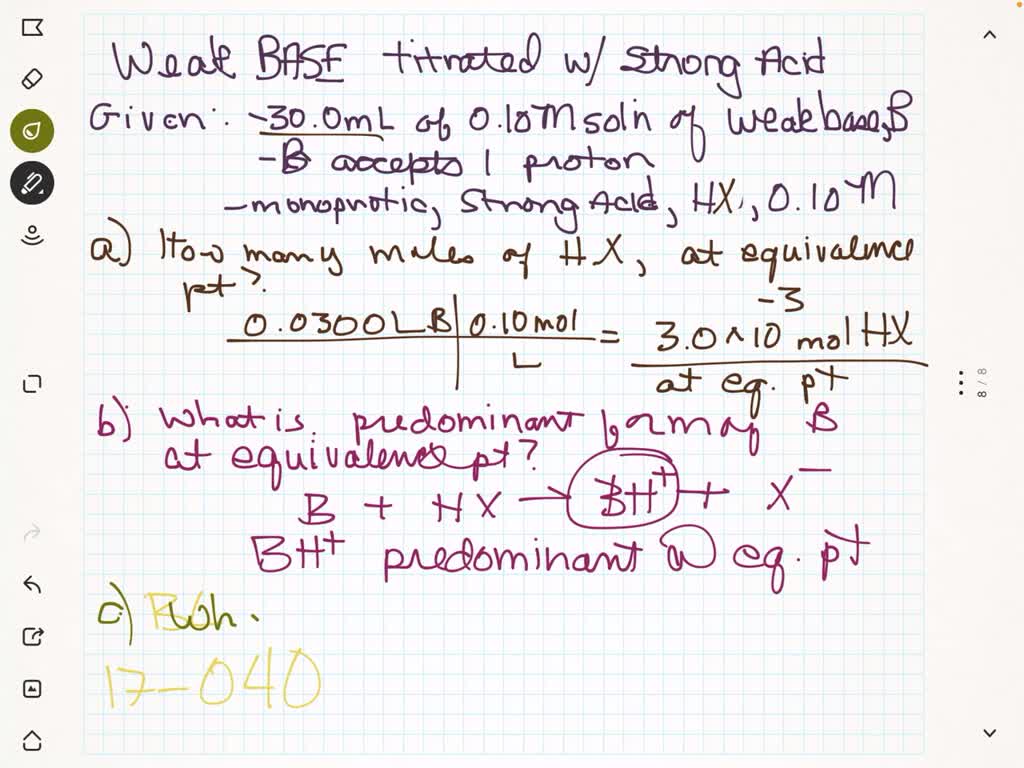 Weak BASE titrated w/ Strong Acid
Given: -30.0mL of 0.10M soln of weak base, B
-B accepts 1 proton
-monoprotic, Strong Acid, HX, 0.10 M
a) How many moles of HX, at equivalence
pt?
0.0300L B | 0.10 mol = 3.0 × 10^-3 mol HX
L at eq. pt
b) What is predominant form of B
at equivalence pt?
B + HX → BH+ + X-
BH+ predominant @ eq. pt
c) Wh
17-040
8/8